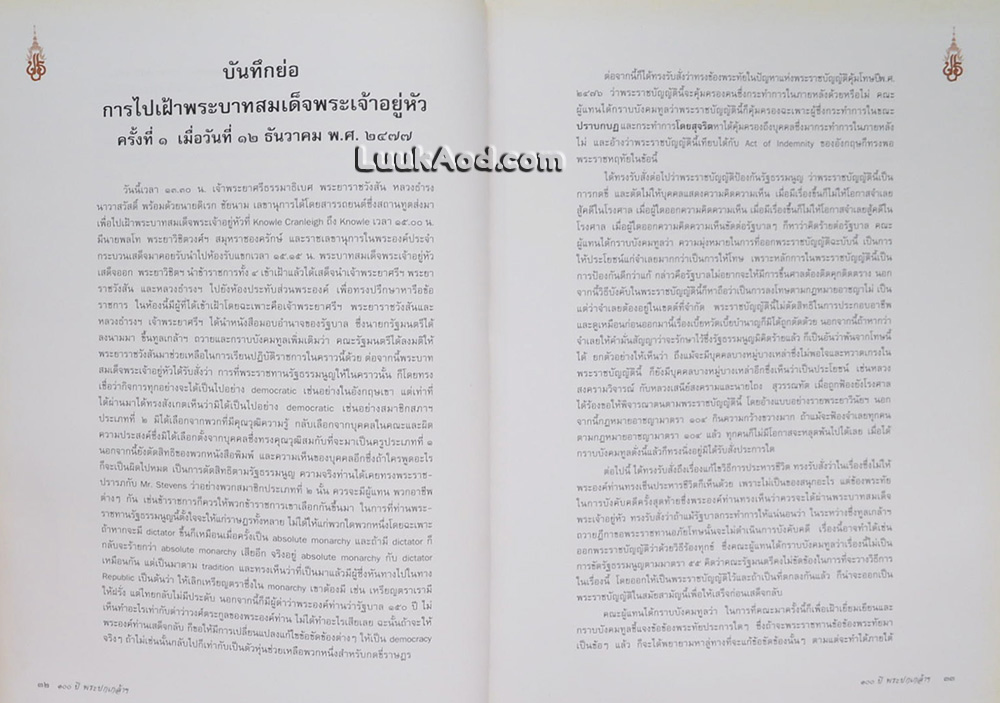 บันทึกย่อ
การไปเฝ้าพระบาทสมเด็จพระเจ้าอยู่หัว
ครั้งที่ ๑ เมื่อวันที่ ๑๒ ธันวาคม พ.ศ. ๒๔๗๗
LuukAod.com
วันนี้เวลา ๑๓.๓๐ น. เจ้าพระยาศรีธรรมาธิเบศ พระยาราชวังสัน หลวงธำรง
นาวาสวัสดิ์ พร้อมด้วยนายดิเรก ชัยนาม เลขานุการได้โดยสารรถยนต์ซึ่งสถานทูตส่งมา
เพื่อไปเฝ้าพระบาทสมเด็จพระเจ้าอยู่หัวที่ Knowle Cranleigh ถึง Knowle เวลา ๑๕.๐๐ น.
มีนายพลโท พระยาวิชิตวงศ์ฯ สมุหราชองครักษ์ และราชเลขานุการในพระองค์ประจำ
กระบวนเสด็จมาคอยรับนำไปห้องรับแขกเวลา ๑๕.๑๕ น. พระบาทสมเด็จพระเจ้าอยู่หัว
เสด็จออก พระยาวิชิตฯ นำข้าราชการทั้ง ๔ เข้าเฝ้าแล้วได้เสด็จนำเจ้าพระยาศรีฯ พระยา
ราชวังสัน และหลวงธำรงฯ ไปยังห้องประทับส่วนพระองค์ เพื่อทรงปรึกษาหารือข้อ
ราชการ ในห้องนี้มีผู้ที่ได้เข้าเฝ้าโดยฉะเพาะคือเจ้าพระยาศรีฯ พระยาราชวังสันและ
หลวงธำรงฯ เจ้าพระยาศรีฯ ได้นำหนังสือมอบอำนาจของรัฐบาล ซึ่งนายกรัฐมนตรีได้
ลงนามมา ขึ้นทูลเกล้าฯ ถวายและกราบบังคมทูลเพิ่มเติมว่า คณะรัฐมนตรีได้ลงมติให้
พระยาราชวังสันมาช่วยเหลือในการเรียนปฏิบัติราชการในคราวนี้ด้วย ต่อจากนี้พระบาท
สมเด็จพระเจ้าอยู่หัวได้รับสั่งว่า การที่พระราชทานรัฐธรรมนูญให้ในคราวนั้น ก็โดยทรง
เชื่อว่ากิจการทุกอย่างจะได้เป็นไปอย่าง democratic เช่นอย่างในอังกฤษเขา แต่เท่าที่
ได้ผ่านมาได้ทรงสังเกตเห็นว่ามิได้เป็นไปอย่าง democratic เช่นอย่างสมาชิกสภาฯ
ประเภทที่ ๒ มิได้เลือกจากพวกที่มีคุณวุฒิความรู้ กลับเลือกจากบุคคลในคณะและผิด
ความประสงค์ซึ่งมิได้เลือกตั้งจากบุคคลซึ่งทรงคุณวุฒิสมกับที่จะมาเป็นครูประเภทที่ ๑
นอกจากนี้ยังตัดสิทธิของพวกหนังสือพิมพ์ และความเห็นของบุคคลอีกซึ่งถ้าใครพูดอะไร
ก็จะเป็นผิดไปหมด เป็นการตัดสิทธิตามรัฐธรรมนูญ ความจริงท่านได้เคยทรงพระราช-
ปรารภกับ Mr. Stevens ว่าอย่างพวกสมาชิกประเภทที่ ๒ นั้น ควรจะมีผู้แทน พวกอาชีพ
ต่างๆ กัน เช่นข้าราชการก็ควรให้พวกข้าราชการเขาเลือกกันขึ้นมา ในการที่ท่านพระ-
ราชทานรัฐธรรมนูญนี้ตั้งใจจะให้แก่ราษฎรทั้งหลาย ไม่ได้ให้แก่พวกใดพวกหนึ่งโดยฉะเพาะ
ถ้าหากจะมี dictator ขึ้นก็เหมือนเมื่อครั้งเป็น absolute monarchy และถ้ามี dictator ก็
กลับจะร้ายกว่า absolute monarchy เสียอีก จริงอยู่ absolute monarchy กับ dictator
เหมือนกัน แต่เป็นมาตาม tradition และทรงเห็นว่าที่เป็นมาแล้วมีผู้ซึ่งหันทางไปในทาง
Republic เป็นต้นว่า ให้เลิกเหรียญตราซึ่งใน monarchy เขาต้องมี เช่น เหรียญตราเรามี
ให้ฝรั่ง แต่ไทยกลับไม่มีประดับ นอกจากนี้ก็มีผู้ด่าว่าพระองค์ท่านว่ารัฐบาล ๑๕๐ ปี ไม่
เห็นทำอะไรเท่ากับด่าว่าวงศ์ตระกูลของพระองค์ท่าน ไม่ได้ทำอะไรเสียเลย ฉะนั้นถ้าจะให้
พระองค์ท่านเสด็จกลับ ก็ขอให้มีการเปลี่ยนแปลงแก้ไขข้อขัดข้องต่างๆ ให้เป็น democracy
จริงๆ ถ้าไม่เช่นนั้นกลับไปก็เท่ากับเป็นตัวหุ่นช่วยเหลือพวกหนึ่งสำหรับกดขี่ราษฎร
๓๒ ๑๐๐ ปี พระปกเกล้าฯ
ต่อจากนี้ก็ได้ทรงรับสั่งว่าทรงข้องพระทัยในปัญหาแห่งพระราชบัญญัติคุ้มโทษปีพ.ศ.
๒๔๗๖ ว่าพระราชบัญญัตินี้จะคุ้มครองคนซึ่งกระทำการในภายหลังด้วยหรือไม่ คณะ
ผู้แทนได้กราบบังคมทูลว่าพระราชบัญญัตินี้ก็คุ้มครองฉะเพาะผู้ซึ่งกระทำการในขณะ
ปราบกบฏและกระทำการโดยสุจริตหาได้คุ้มครองถึงบุคคลซึ่งมากระทำการในภายหลัง
ไม่ และอ้างว่าพระราชบัญญัตินี้เทียบได้กับ Act of Indemnity ของอังกฤษก็ทรงพอ
พระราชหฤทัยในข้อนี้
ได้ทรงรับสั่งต่อไปว่าพระราชบัญญัติป้องกันรัฐธรรมนูญ ว่าพระราชบัญญัตินี้เป็น
การกดขี่ และตัดไม่ให้บุคคลแสดงความคิดความเห็น เมื่อมีเรื่องขึ้นก็ไม่ให้โอกาสจำเลย
สู้คดีในโรงศาล เมื่อผู้ใดออกความคิดความเห็น เมื่อมีเรื่องขึ้นก็ไม่ให้โอกาสจำเลยสู้คดีใน
โรงศาล เมื่อผู้ใดออกความคิดความเห็นขัดต่อรัฐบาลๆ ก็หาว่าคิดร้ายต่อรัฐบาล คณะ
ผู้แทนได้กราบบังคมทูลว่า ความมุ่งหมายในการที่ออกพระราชบัญญัติฉะบับนี้ เป็นการ
ให้ประโยชน์แก่จำเลยมากกว่าเป็นการให้โทษ เพราะหลักการในพระราชบัญญัตินี้เป็น
การป้องกันดีกว่าแก้ กล่าวคือรัฐบาลไม่อยากจะให้มีการขึ้นศาลต้องติดคุกติดตราง นอก
จากนี้วิธีบังคับในพระราชบัญญัตินี้ก็หาถือว่าเป็นการลงโทษตามกฎหมายอาชญาไม่ เป็น
แต่ว่าจำเลยต้องอยู่ในเขตต์ที่จำกัด พระราชบัญญัตินี้ไม่ตัดสิทธิในการประกอบอาชีพ
และดูเหมือนก่อนออกมานี้เรื่องเบี้ยหวัดเบี้ยบำนาญก็มิได้ถูกตัดด้วย นอกจากนี้ถ้าหากว่า
จำเลยให้คำมั่นสัญญาว่าจะรักษาไว้ซึ่งรัฐธรรมนูญมิคิดร้ายแล้ว ก็เป็นอันว่าพ้นจากโทษนี้
ได้ ยกตัวอย่างให้เห็นว่า ถึงแม้จะมีบุคคลบางหมู่บางเหล่าซึ่งไม่พอใจและหวาดเกรงใน
พระราชบัญญัตินี้ ก็ยังมีบุคคลบางหมู่บางเหล่าอีกซึ่งเห็นว่าเป็นประโยชน์ เช่นหลวง
สงครามวิจารณ์ กับหลวงเสนีย์สงครามและนายไถง สุวรรณทัต เมื่อถูกฟ้องยังโรงศาล
ได้ร้องขอให้พิจารณาตนตามพระราชบัญญัตินี้ โดยอ้างแบบอย่างรายพระยาวินัยฯ นอก
จากนี้กฎหมายอาชญามาตรา ๑๐๔ กินความกว้างขวางมาก ถ้าแม้จะฟ้องจำเลยทุกคน
ตามกฎหมายอาชญามาตรา ๑๐๔ แล้ว ทุกคนก็ไม่มีโอกาสจะหลุดพ้นไปได้เลย เมื่อได้
กราบบังคมทูลดั่งนี้แล้วก็ทรงนิ่งอยู่มิได้รับสั่งประการใด
ต่อไปนี้ ได้ทรงรับสั่งถึงเรื่องแก้ไขวิธีการประหารชีวิต ทรงรับสั่งว่าในเรื่องซึ่งไม่ให้
พระองค์ท่านทรงเซ็นประหารชีวิตก็เห็นด้วย เพราะไม่เป็นของสนุกอะไร แต่ข้องพระทัย
ในการบังคับคดีครั้งสุดท้ายซึ่งพระองค์ท่านทรงเห็นว่าควรจะได้ผ่านพระบาทสมเด็จ
พระเจ้าอยู่หัว ทรงรับสั่งว่าถ้าแม้รัฐบาลกระทำการให้แน่นอนว่า ในระหว่างซึ่งทูลเกล้าฯ
ถวายฎีกาขอพระราชทานอภัยโทษนั้นจะไม่ดำเนินการบังคับคดี เรื่องนี้อาจทำได้เช่น
ออกพระราชบัญญัติว่าด้วยวิธีร้องทุกข์ ซึ่งคณะผู้แทนได้กราบบังคมทูลว่าเรื่องนี้ไม่เป็น
การขัดรัฐธรรมนูญตามมาตรา ๕๕ คิดว่าคณะรัฐมนตรีคงไม่ขัดข้องในการที่จะวางวิธีการ
ในเรื่องนี้ โดยออกให้เป็นพระราชบัญญัติไว้และถ้าเป็นที่ตกลงกันแล้ว ก็น่าจะออกเป็น
พระราชบัญญัติในสมัยสามัญนี้เพื่อให้เสร็จก่อนเสด็จกลับ
คณะผู้แทนได้กราบบังคมทูลว่า ในการที่คณะมาครั้งนี้ก็เพื่อเฝ้าเยี่ยมเยียนและ
กราบบังคมทูลชี้แจงข้อข้องพระทัยประการใดๆ ซึ่งถ้าจะพระราชทานข้อข้องพระทัยมา
เป็นข้อๆ แล้ว ก็จะได้พยายามหาลู่ทางที่จะแก้ข้อขัดข้องนั้นๆ ตามแต่จะทำได้ภายใต้
๑๐๐ ปี พระปกเกล้าฯ ๓๓